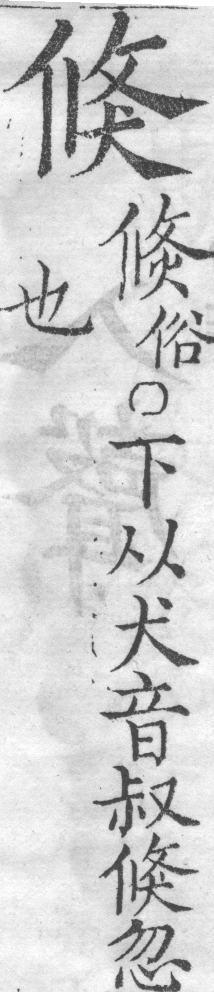 倏
倐俗○下从犬音叔倏忽
也